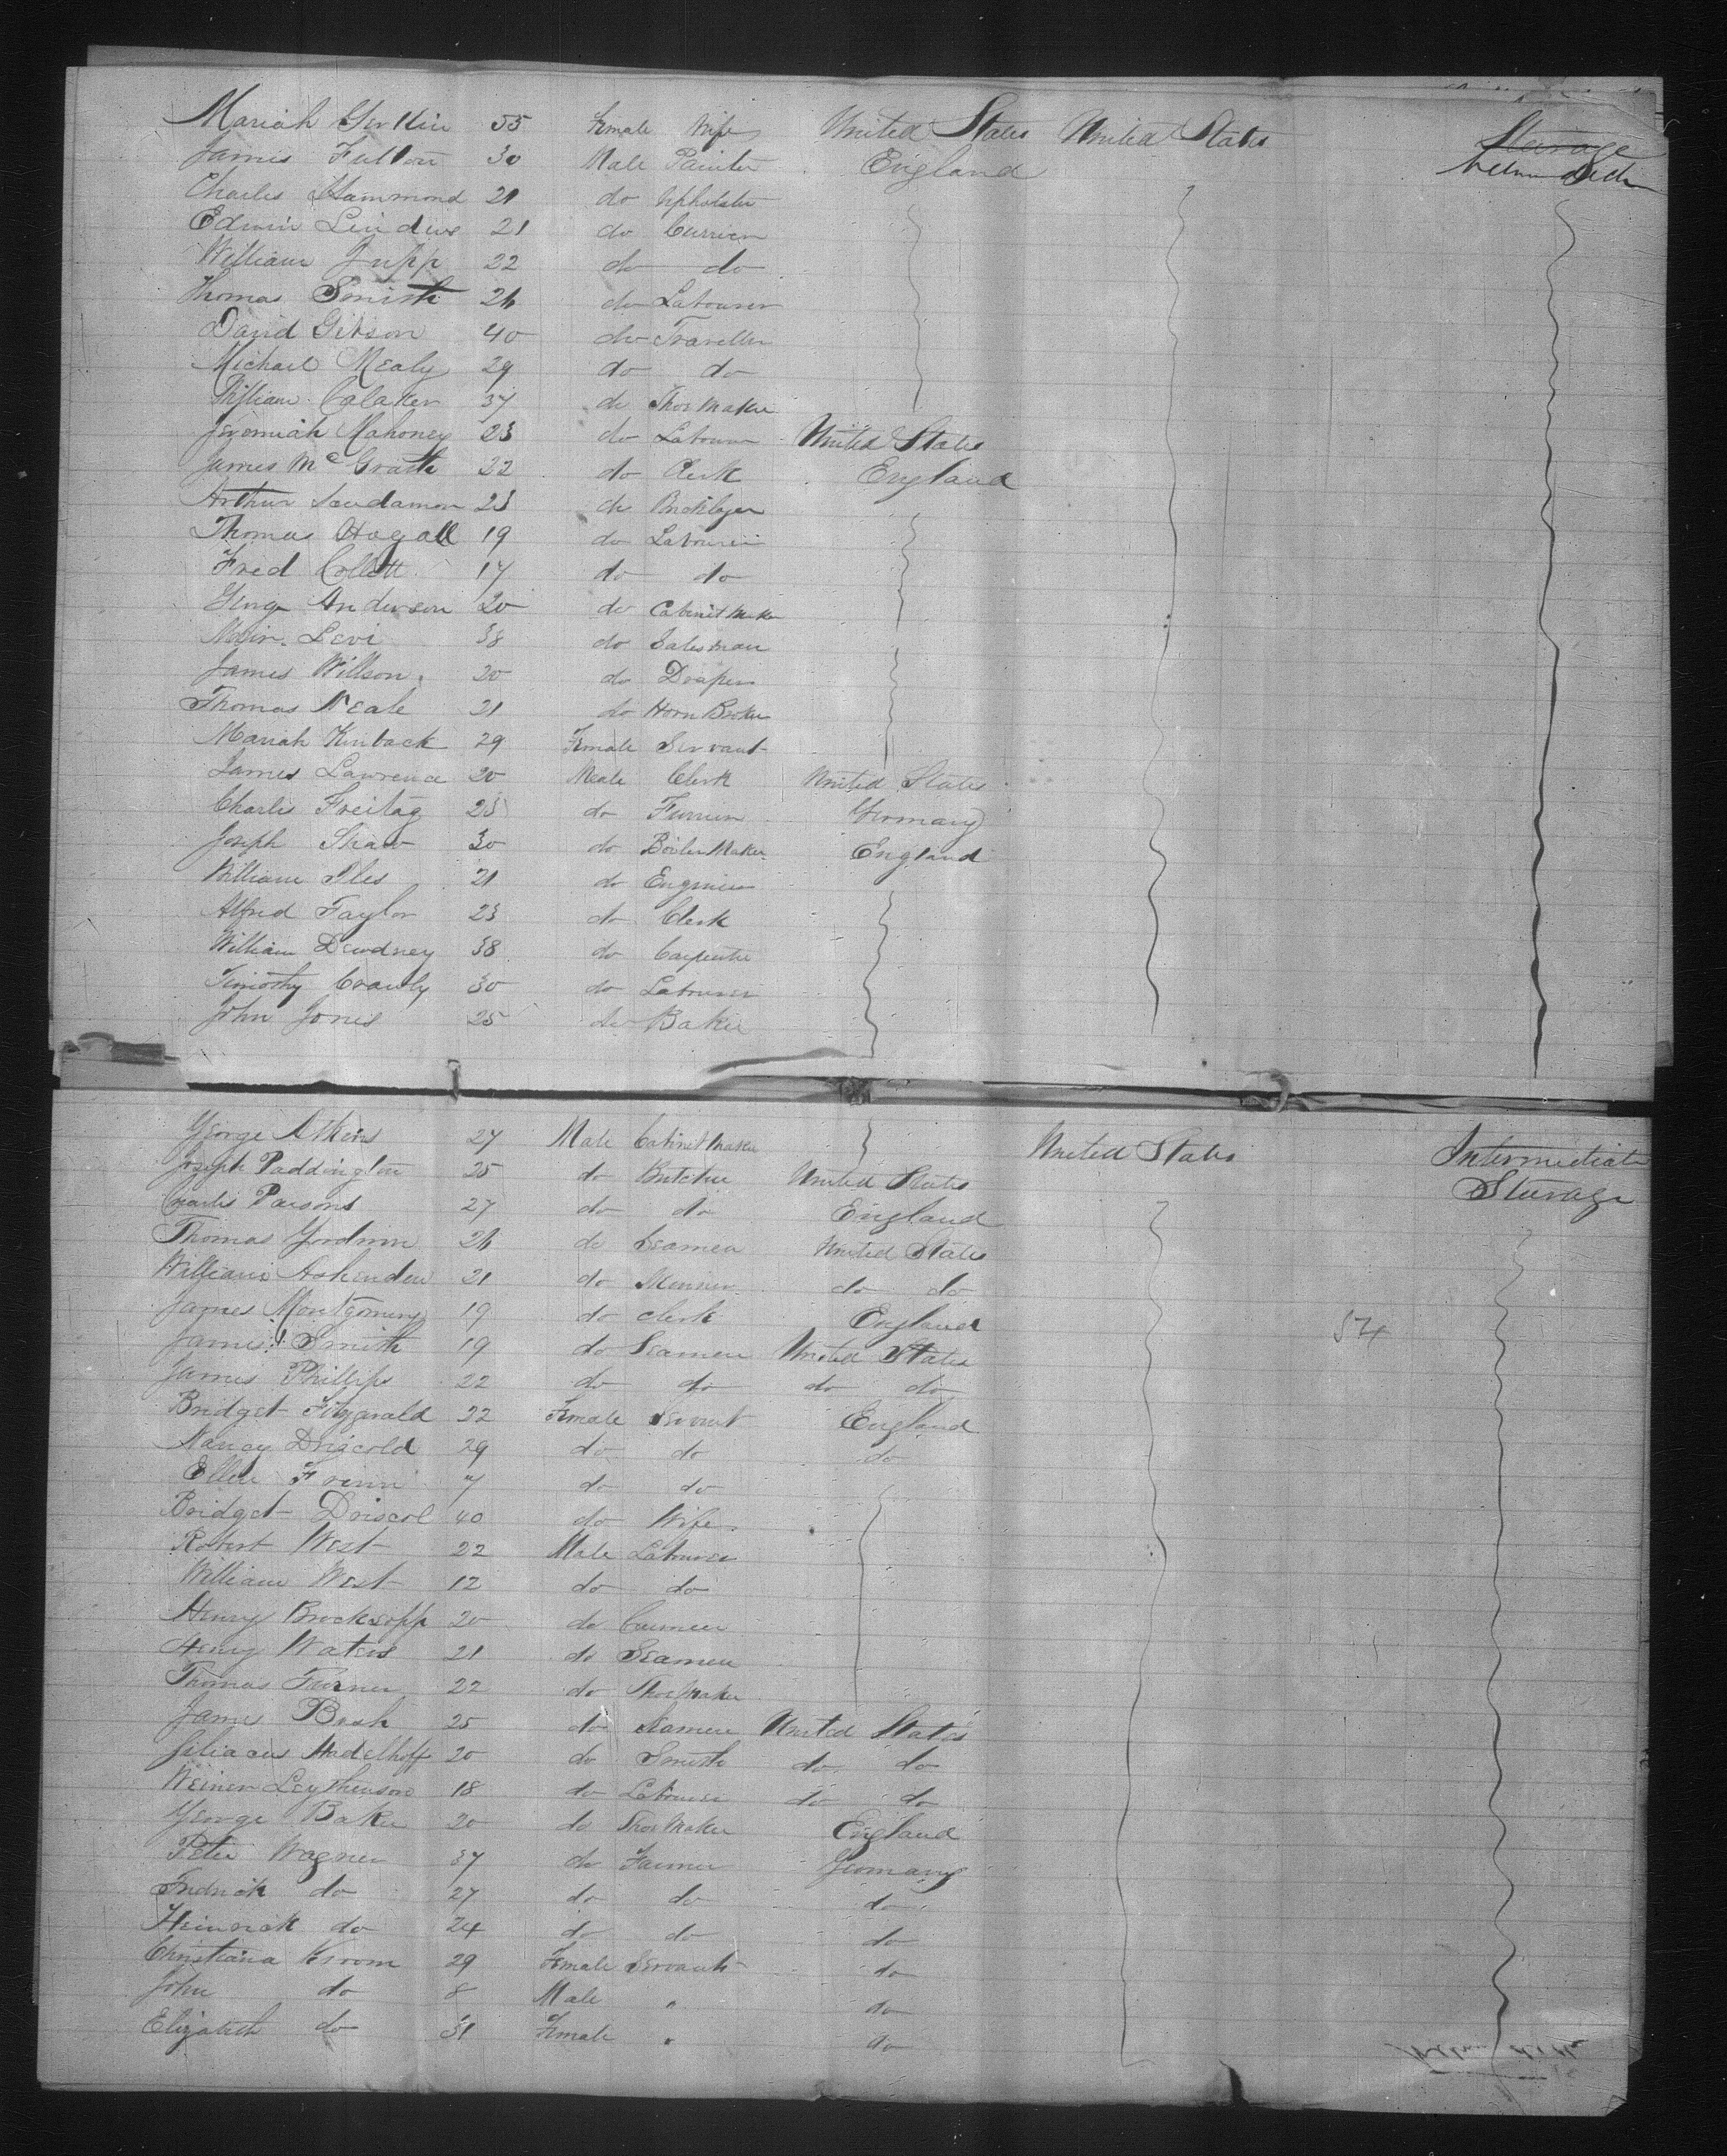 Mariah 55 Female Wife United States United States Steerage
James Fulton 30 Male Painter England between decks
Charles Hammond 21 do Upholster
Edwin 21 do Currier
William Jupp 22 do do
Thomas Smith 26 do Labourer
David Gibson 40 do Traveller
Michael Mealy 29 do do
William Calaker 37 do Shoe Maker
Jeremiah Mahoney 23 do Labourer United States
James McGrath 22 do Clerk England
Arthur 23 do Bricklayer
Thomas Hagall 19 do Labourer
Fred Collett 17 do do
George Anderson 20 do Cabinet Maker
Levi 38 do Salesman
James Willson 20 do Draper
Thomas Neale 21 do Horn Broker
Mariah Kinback 29 Female Servant
James Lawrence 20 Male Clerk United States
Charles Freitag 23 do Germany
Joseph Shaw 30 do Boiler Maker England
William Iles 21 do Engineer
Alfred Taylor 23 do Clerk
William Dewdney 38 do Carpenter
Timothy Crawly 30 do Labourer
John Jones 25 do Baker
George Atkins 27 Male Cabinet Maker United States Intermediate
Joseph Paddington 25 do Butcher United States Sturage
Charles Parsons 27 do do England
Thomas 26 do Seamen United States
William Ashenden 21 do do do
James Montgomery 19 do Clerk England 54
James Smith 19 do Seamen United States
James Phillips 22 do do do do
Bridget Fitzgarald 22 Female Servant England
Nancy Driscold 29 do do do
Ellen 7 do do
Bridget Driscol 40 do Wife
Robert West 22 Male Labourer
William West 12 do do
Henry Brocksopp 20 do
Henry Waters 21 do Seamen
Thomas Turner 22 do Shoe Maker
James Bush 25 do Seamen United States
Hadelhoff 20 do Smith do do
18 do Labourer do do
George Baker 20 do Shoe Maker England
Peter Wagner 37 do Farmer Germany
Fredrick do 27 do do do
Heinrick do 24 do do do
Christiana Kroom 29 Female Servant do
John do 8 Male " do
Elizabeth do 31 Female " do